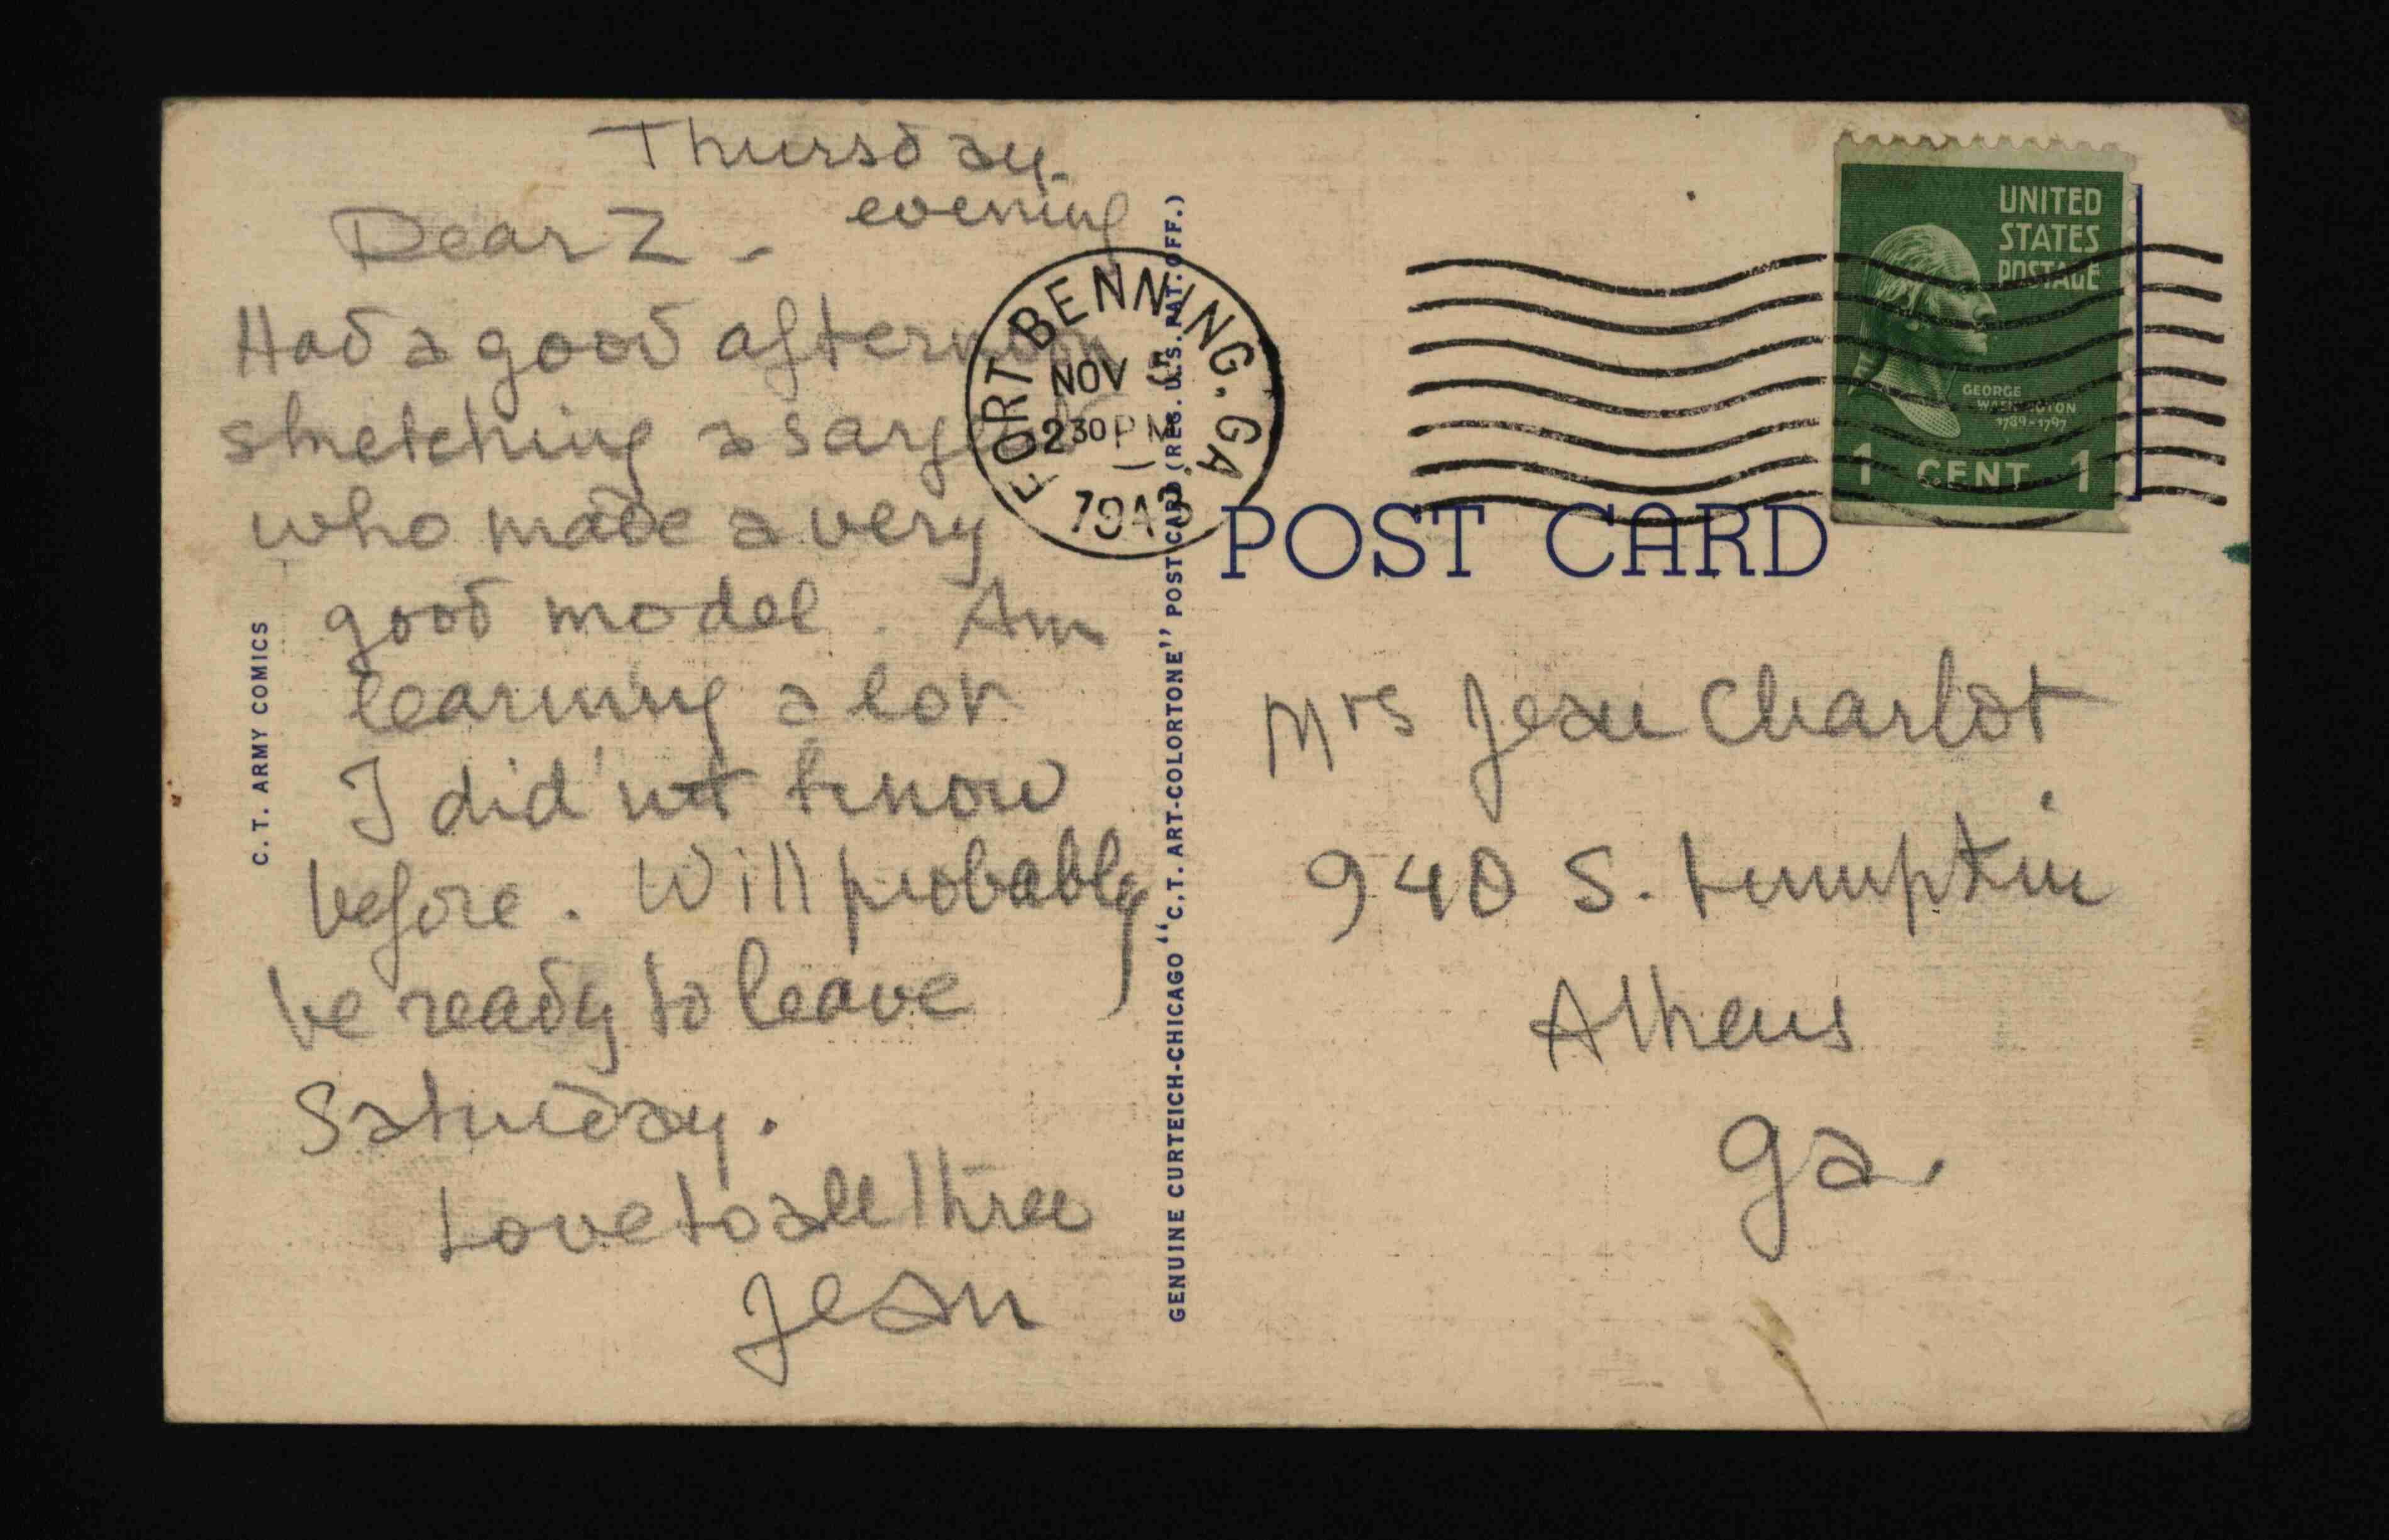 Thursday
evening
Dear Z -
Had a good afternoon
sketching a sarge
who made a very
good model. Am
learning a lot
I did'nt know
before. Will probably
be ready to leave
Saturday.
Love to all three
Jean
C. T. ARMY COMICS
GENUINE CURTEICH-CHICAGO "C.T. ART-COLORTONE" POST CARD (RES. U.S. PAT. OFF.)
FORT BENNING. GA.
NOV 5
230 PM
1943
UNITED
STATES
POSTAGE
GEORGE
WASHINGTON
1789-1797
1 CENT 1
POST CARD
Mrs Jean Charlot
940 S. Lumpkin
Athens
Ga.